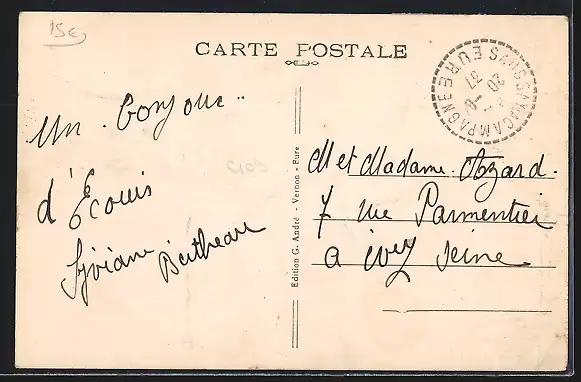 15€
CARTE POSTALE
SUZAY CAMPAGNE EURE
20 - 9
37
Un bonjour
d'Écouis
Bertheau
C109
Edition G. André - Vernon - Eure
M et Madame Azard.
7 rue Parmentier
a ivry Seine